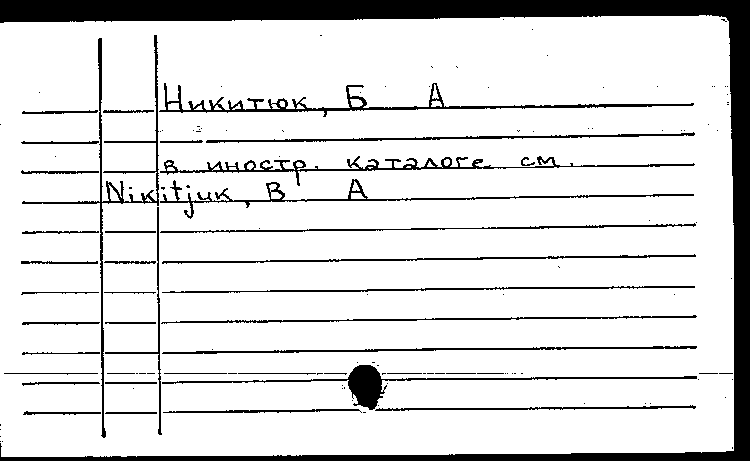 Никитюк, Б А
в иностр. каталоге см.
Nikitjuk, B A